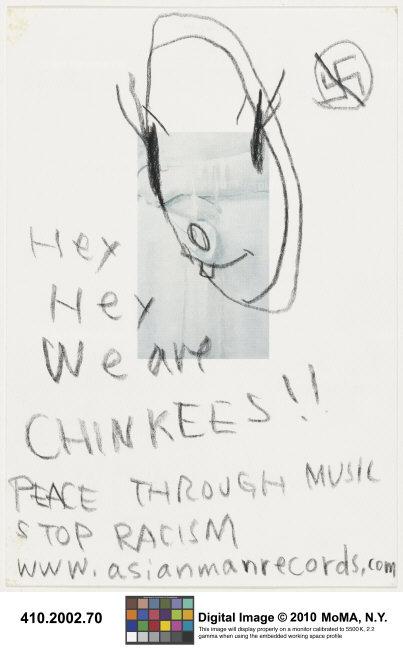 Hey
Hey
We are
CHINKEES!!
PEACE THROUGH MUSIC
STOP RACISM
www.asianmanrecords.com
410.2002.70
Digital Image © 2010 MoMA, N.Y.
This image will display properly on a monitor calibrated to 5500 K, 2.2
gamma when using the embedded working space profile